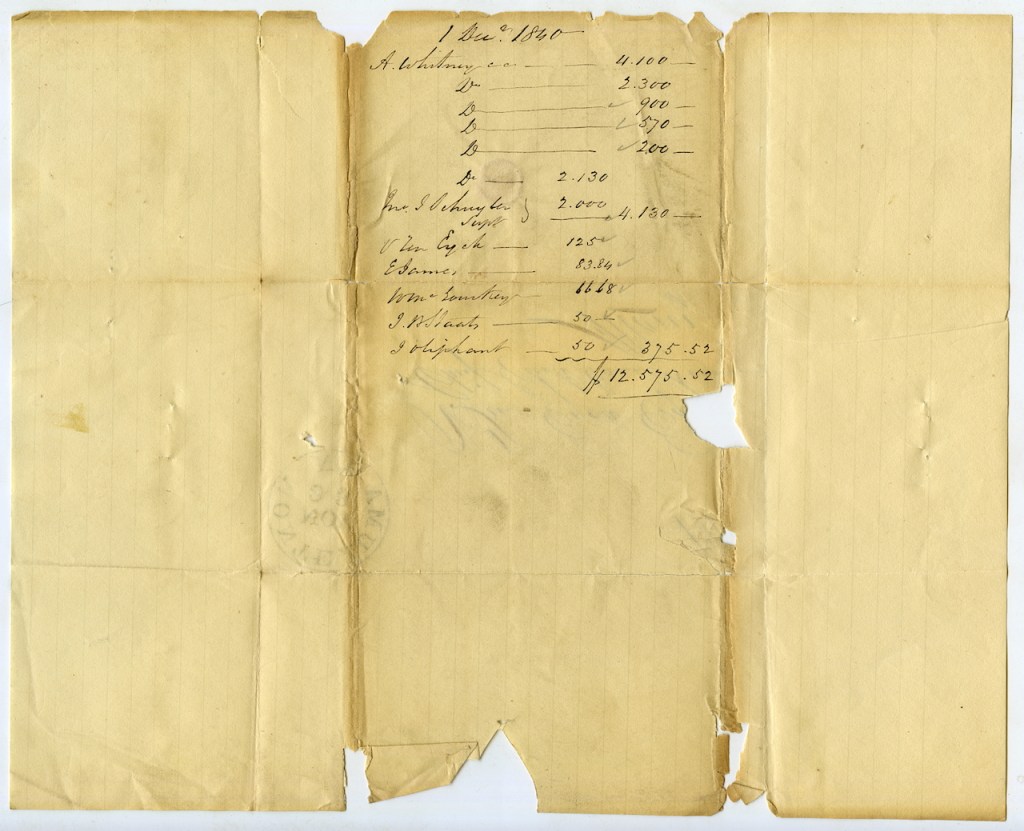 1 Decr. 1840
A. Whitney 4.100
Do 2.300
D 900
D 570
D 200
Do 2.130
Jno. I Schuyler 2.000
Supt 4.130
V Ten Eyck 125
E James 83.84
Wm 66.68
J. B Staats 50
J Oliphant 50 375.52
$ 12.575.52